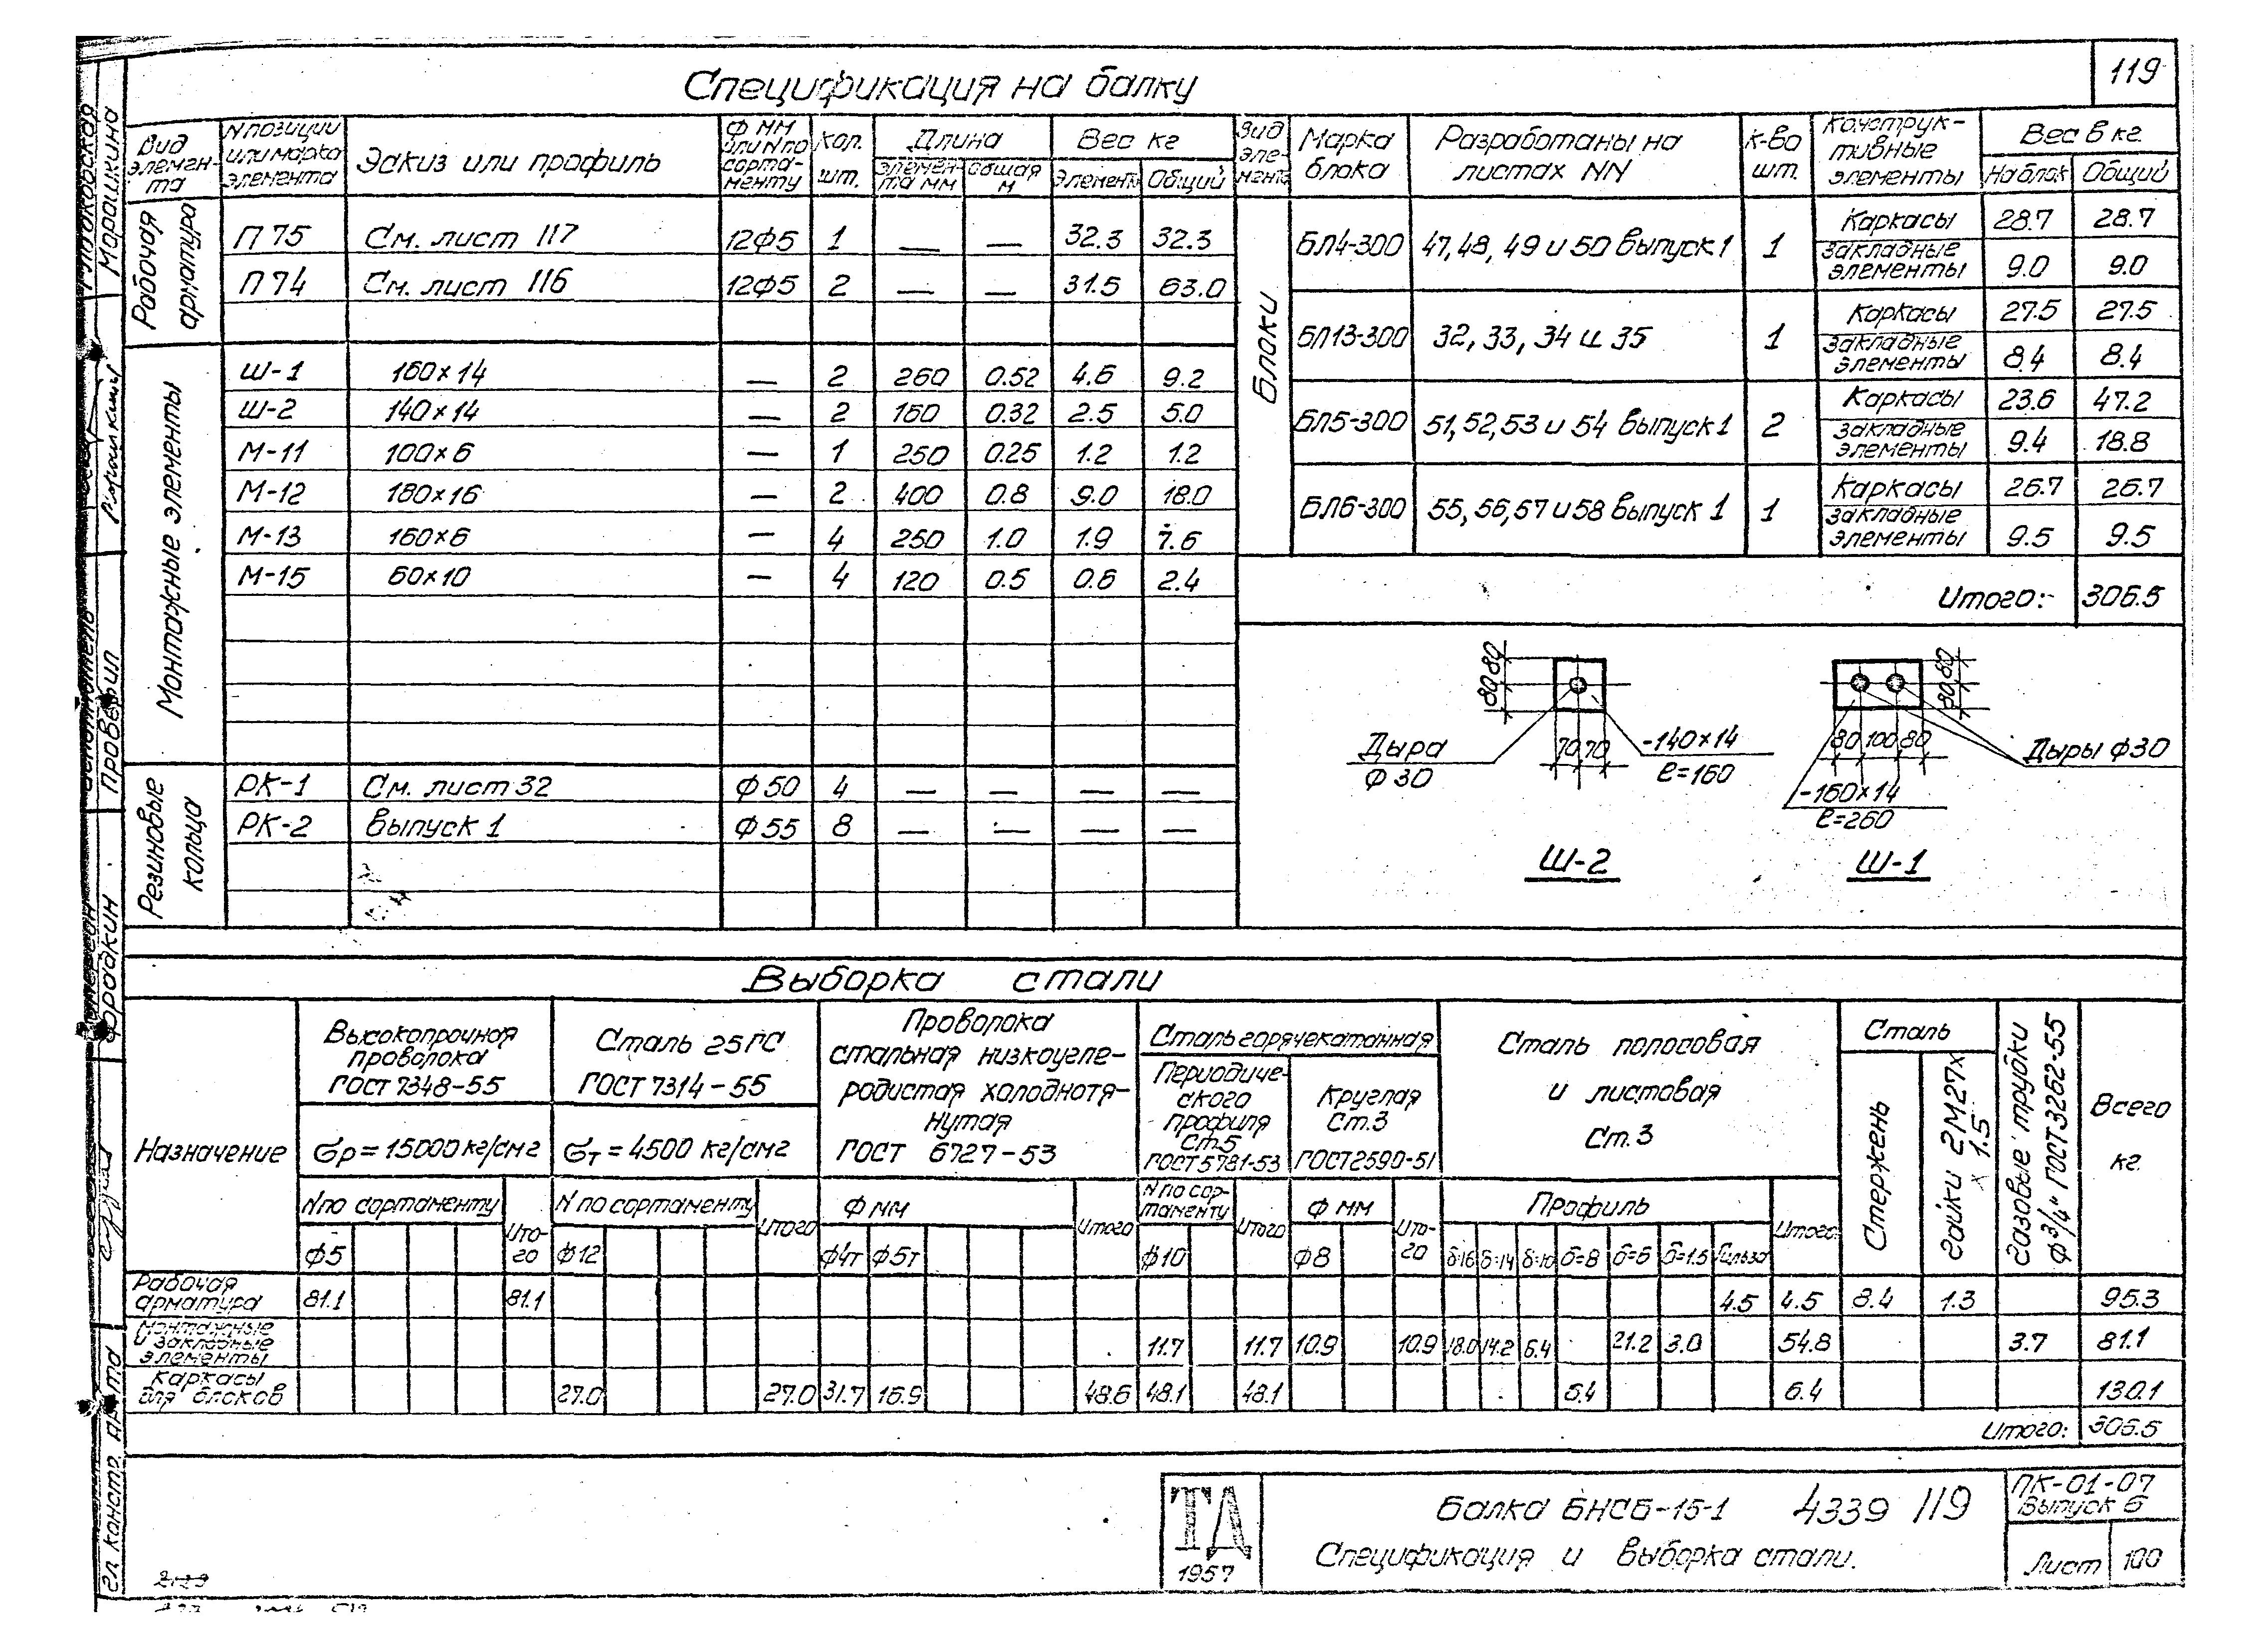 119
Спецификация на балку
Вид элемен-та | N позиции или марка элемента | Эскиз или профиль | Ф мм или N по сорта-менту | Кол. шт. | Длина | Вес кг
элемен-та мм | общая м | Элемента | Общий
Рабочая арматура
П 75 | См. лист 117 | 12ф5 | 1 | — | — | 32.3 | 32.3
П 74 | См. лист 116 | 12ф5 | 2 | — | — | 31.5 | 63.0
Монтажные элементы
Ш-1 | 160×14 | — | 2 | 260 | 0.52 | 4.6 | 9.2
Ш-2 | 140×14 | — | 2 | 160 | 0.32 | 2.5 | 5.0
М-11 | 100×6 | — | 1 | 250 | 0.25 | 1.2 | 1.2
М-12 | 180×16 | — | 2 | 400 | 0.8 | 9.0 | 18.0
М-13 | 160×6 | — | 4 | 250 | 1.0 | 1.9 | 7.6
М-15 | 60×10 | — | 4 | 120 | 0.5 | 0.6 | 2.4
Резиновые кольца
РК-1 | См. лист 32 | ф 50 | 4 | — | — | — | —
РК-2 | Выпуск 1 | ф 55 | 8 | — | — | — | —
Вид эле-мента | Марка блока | Разработаны на листах NN | к-во шт. | Конструк-тивные элементы | Вес в кг.
На блок | Общий
Блоки
БЛ4-300 | 47, 48, 49 и 50 Выпуск 1 | 1 | Каркасы | 28.7 | 28.7
Закладные элементы | 9.0 | 9.0
БЛ13-300 | 32, 33, 34 и 35 | 1 | Каркасы | 27.5 | 27.5
Закладные элементы | 8.4 | 8.4
БЛ5-300 | 51, 52, 53 и 54 Выпуск 1 | 2 | Каркасы | 23.6 | 47.2
Закладные элементы | 9.4 | 18.8
БЛ6-300 | 55, 56, 57 и 58 Выпуск 1 | 1 | Каркасы | 26.7 | 26.7
Закладные элементы | 9.5 | 9.5
Итого: 306.5
80 80
Дыра
ф 30
70 70
-140×14
ℓ=160
Ш-2
80 80
80 100 80
Дыры ф30
-160×14
ℓ=260
Ш-1
Выборка стали
Назначение
Высокопрочная проволока ГОСТ 7348-55
бр = 15000 кг/см2
N по сортаменту | Ито-го
ф5
Сталь 25ГС ГОСТ 7314-55
бт = 4500 кг/см2
N по сортаменту | Итого
ф12
Проволока стальная низкоугле-родистая холоднотя-нутая ГОСТ 6727-53
Ф мм | Итого
ф4т | ф5т
Сталь горячекатанная
Периодиче-ского профиля Ст.5 ГОСТ 5781-53
N по сор-таменту | Итого
ф10
Круглая Ст.3 ГОСТ 2590-51
Ф мм | Ито-го
ф8
Сталь полосовая и листовая Ст.3
Профиль | Итого
δ=16 | δ=14 | δ=10 | δ=8 | δ=6 | δ=1.5 | Гильза
Сталь
Стержень | Гайки 2М27× ×1.5
Газовые трубки ф3/4" ГОСТ 3262-55
Всего кг.
Рабочая арматура | 81.1 | 81.1 | 4.5 | 4.5 | 8.4 | 1.3 | 95.3
Монтажные и закладные элементы | 11.7 | 11.7 | 10.9 | 10.9 | 18.0 | 14.2 | 6.4 | 21.2 | 3.0 | 54.8 | 3.7 | 81.1
Каркасы для блоков | 27.0 | 27.0 | 31.7 | 16.9 | 48.6 | 48.1 | 48.1 | 6.4 | 6.4 | 130.1
Итого: 306.5
ТД
1957
Балка БНСБ-15-1 4339 119
Спецификация и выборка стали.
ПК-01-07
Выпуск 6
Лист 100
Марашкина
Проверил
Гл. констр.